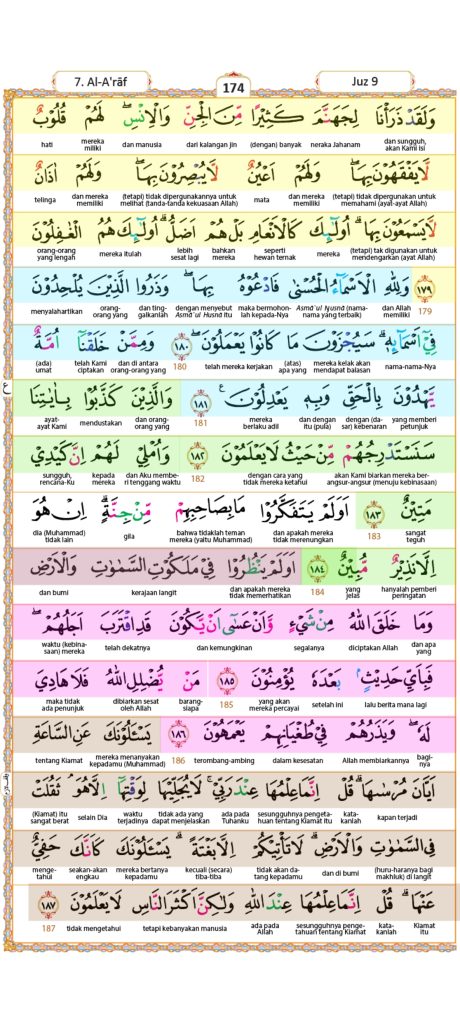 7. Al-A'rāf
174
Juz 9
وَلَقَدْ ذَرَأْنَا لِجَهَنَّمَ كَثِيْرًا مِّنَ الْجِنِّ وَالْاِنْسِۖ لَهُمْ قُلُوْبٌ
dan sungguh, akan Kami isi neraka Jahanam (dengan) banyak dari kalangan jin dan manusia mereka miliki hati
لَّا يَفْقَهُوْنَ بِهَاۖ وَلَهُمْ اَعْيُنٌ لَّا يُبْصِرُوْنَ بِهَاۖ وَلَهُمْ اٰذَانٌ
(tetapi) tidak dipergunakan untuk memahami (ayat-ayat Allah) dan mereka memiliki mata (tetapi) tidak dipergunakannya untuk melihat (tanda-tanda kekuasaan Allah) dan mereka memiliki telinga
لَّا يَسْمَعُوْنَ بِهَاۗ اُولٰۤىِٕكَ كَالْاَنْعَامِ بَلْ هُمْ اَضَلُّۗ اُولٰۤىِٕكَ هُمُ الْغٰفِلُوْنَ
(tetapi) tak digunakan untuk mendengarkan (ayat Allah) mereka seperti hewan ternak bahkan mereka lebih sesat lagi mereka itulah orang-orang yang lengah
۝١٧٩ وَلِلّٰهِ الْاَسْمَاۤءُ الْحُسْنٰى فَادْعُوْهُ بِهَاۖ وَذَرُوا الَّذِيْنَ يُلْحِدُوْنَ
179 dan Allah memiliki Asmā'ul Ḥusnā (nama-nama yang terbaik) maka bermohon-lah kepada-Nya dengan menyebut Asmā'ul Ḥusnā itu dan ting-galkanlah orang-orang yang menyalahartikan
فِيْٓ اَسْمَاۤىِٕهٖۗ سَيُجْزَوْنَ مَا كَانُوْا يَعْمَلُوْنَۖ ۝١٨٠ وَمِمَّنْ خَلَقْنَآ اُمَّةٌ
nama-nama-Nya mereka kelak akan mendapat balasan (atas) apa yang telah mereka kerjakan 180 dan di antara orang-orang yang telah Kami ciptakan (ada) umat
يَّهْدُوْنَ بِالْحَقِّ وَبِهٖ يَعْدِلُوْنَ ۝١٨١ وَالَّذِيْنَ كَذَّبُوْا بِاٰيٰتِنَا
yang memberi petunjuk dengan (da-sar) kebenaran dan dengan itu (pula) mereka berlaku adil 181 dan orang-orang yang mendustakan ayat-ayat Kami
سَنَسْتَدْرِجُهُمْ مِّنْ حَيْثُ لَا يَعْلَمُوْنَ ۝١٨٢ وَاُمْلِيْ لَهُمْ اِنَّ كَيْدِيْ
akan Kami biarkan mereka ber-angsur-angsur (menuju kebinasaan) dengan cara yang tidak mereka ketahui 182 dan Aku membe-ri tenggang waktu kepada mereka sungguh, rencana-Ku
مَتِيْنٌ ۝١٨٣ اَوَلَمْ يَتَفَكَّرُوْا مَا بِصَاحِبِهِمْ مِّنْ جِنَّةٍۗ اِنْ هُوَ
sangat teguh 183 dan apakah mereka tidak merenungkan bahwa tidaklah teman mereka (yaitu Muhammad) gila dia (Muhammad) tidak lain
اِلَّا نَذِيْرٌ مُّبِيْنٌ ۝١٨٤ اَوَلَمْ يَنْظُرُوْا فِيْ مَلَكُوْتِ السَّمٰوٰتِ وَالْاَرْضِ
hanyalah pemberi peringatan yang jelas 184 dan apakah mereka tidak memerhatikan kerajaan langit dan bumi
وَمَا خَلَقَ اللّٰهُ مِنْ شَيْءٍ وَّاَنْ عَسٰٓى اَنْ يَّكُوْنَ قَدِ اقْتَرَبَ اَجَلُهُمْۖ
dan apa yang diciptakan Allah segalanya dan kemungkinan telah dekatnya waktu (kebina-saan) mereka
فَبِاَيِّ حَدِيْثٍۢ بَعْدَهٗ يُؤْمِنُوْنَ ۝١٨٥ مَنْ يُّضْلِلِ اللّٰهُ فَلَا هَادِيَ
lalu berita mana lagi setelah ini yang akan mereka percayai 185 barang-siapa dibiarkan sesat oleh Allah maka tidak ada penunjuk
لَهٗۖ وَيَذَرُهُمْ فِيْ طُغْيَانِهِمْ يَعْمَهُوْنَ ۝١٨٦ يَسْـَٔلُوْنَكَ عَنِ السَّاعَةِ
bagi-nya Allah membiarkannya dalam kesesatan terombang-ambing 186 mereka menanyakan kepadamu (Muhammad) tentang Kiamat
اَيَّانَ مُرْسٰىهَاۗ قُلْ اِنَّمَا عِلْمُهَا عِنْدَ رَبِّيْۚ لَا يُجَلِّيْهَا لِوَقْتِهَآ اِلَّا هُوَۘ ثَقُلَتْ
kapan terjadi kata-kanlah sesungguhnya pengeta-huan tentang Kiamat itu ada pada Tuhanku tidak ada yang dapat menjelaskan waktu terjadinya selain Dia (Kiamat) itu sangat berat
فِى السَّمٰوٰتِ وَالْاَرْضِۗ لَا تَأْتِيْكُمْ اِلَّا بَغْتَةًۗ يَسْـَٔلُوْنَكَ كَاَنَّكَ حَفِيٌّ
(huru-haranya bagi makhluk) di langit dan di bumi tidak akan da-tang kepadamu kecuali (secara) tiba-tiba mereka bertanya kepadamu seakan-akan engkau menge-tahui
عَنْهَاۗ قُلْ اِنَّمَا عِلْمُهَا عِنْدَ اللّٰهِ وَلٰكِنَّ اَكْثَرَ النَّاسِ لَا يَعْلَمُوْنَ ۝١٨٧
Kiamat itu kata-kanlah sesungguhnya penge-tahuan tentang Kiamat itu ada pada Allah tetapi kebanyakan manusia tidak mengetahui 187
ع